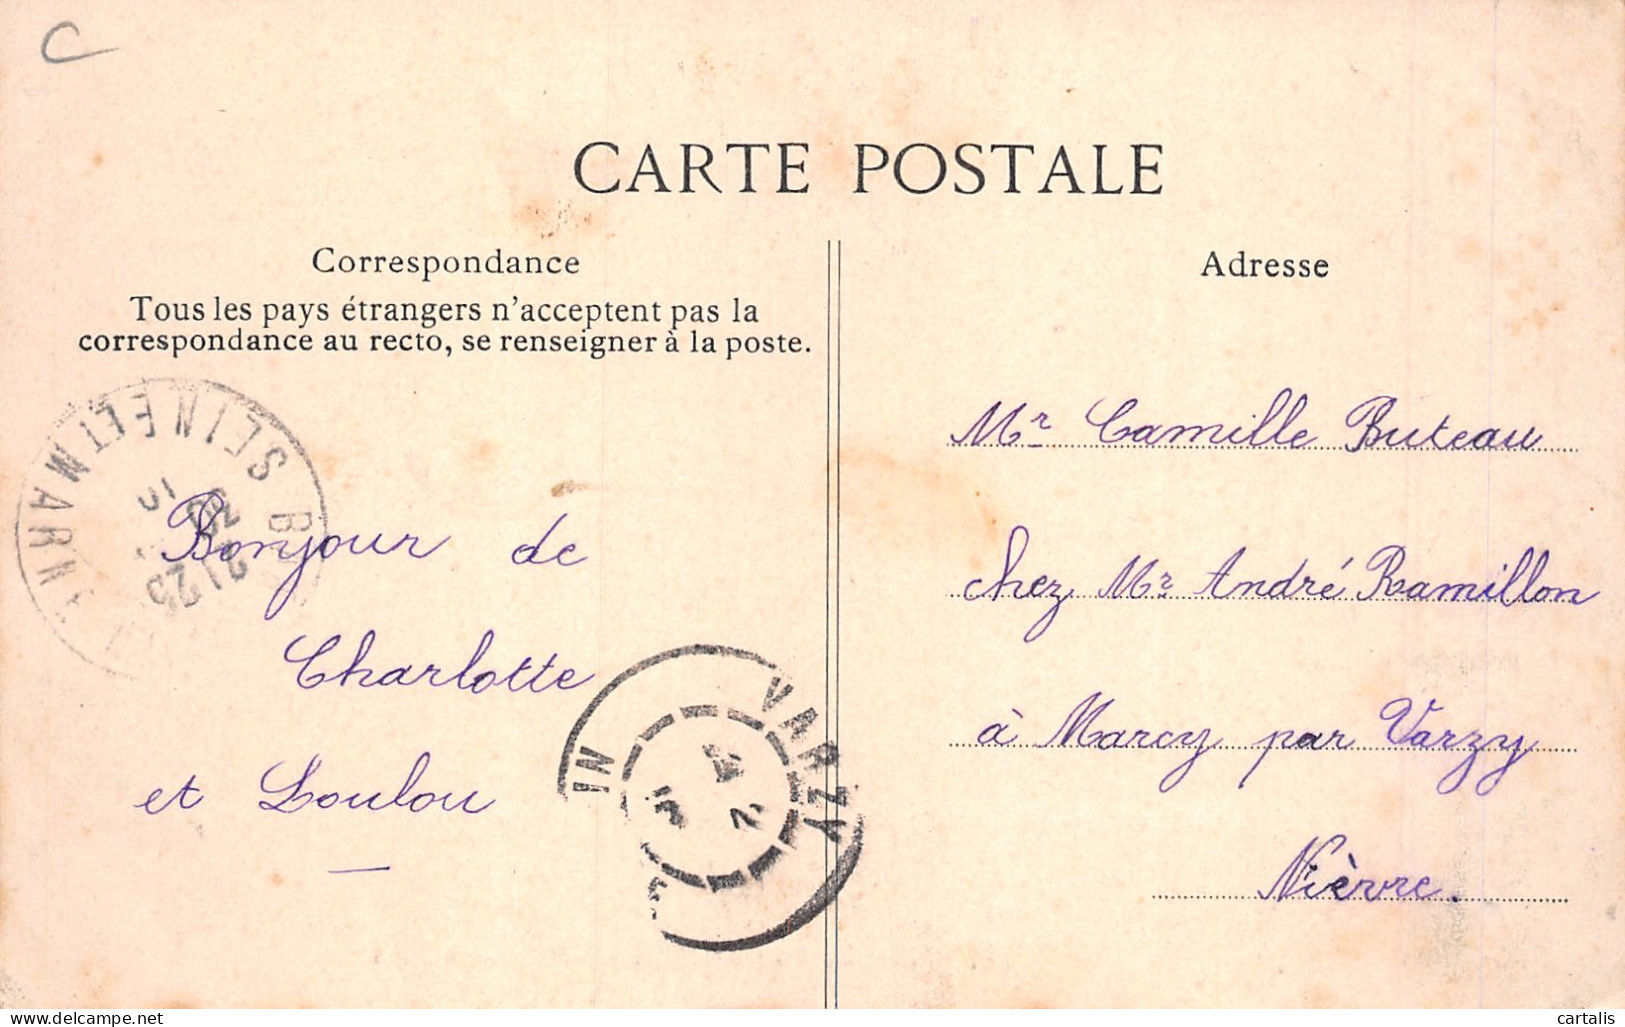 C
CARTE POSTALE
Correspondance
Tous les pays étrangers n'acceptent pas la
correspondance au recto, se renseigner à la poste.
Bonjour de
Charlotte
et Loulou
Adresse
Mr Camille Buteau
chez Mr André Ramillon
à Marcy par Varzy
Nièvre.
SEINE ET MARNE
21 25
VARZY
cartalis
delcampe.net